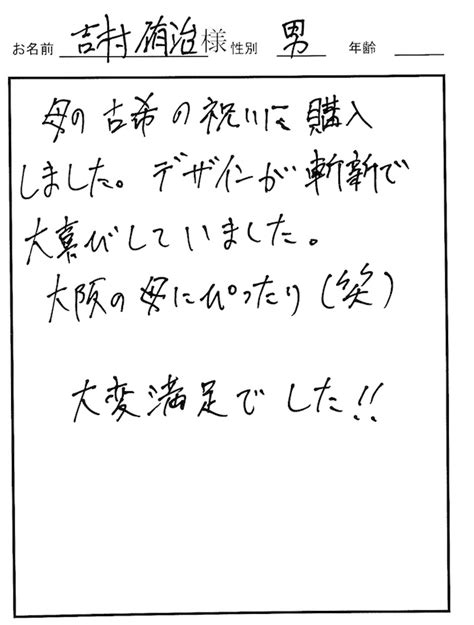 お名前 吉村侑治様 性別 男 年齢
母の古希の祝いに購入
しました。デザインが斬新で
大喜びしていました。
大阪の母にぴったり(笑)
大変満足でした!!